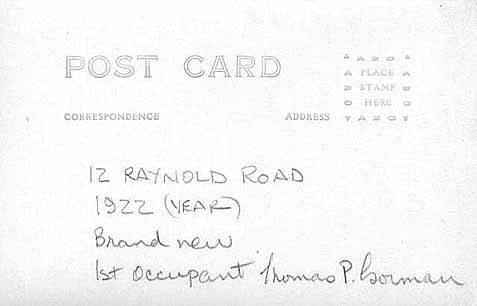 POST CARD
AZO
PLACE
STAMP
HERE
AZO
CORRESPONDENCE
ADDRESS
12 RAYNOLD ROAD
1922 (YEAR)
Brand new
1st Occupant Thomas P. Gorman